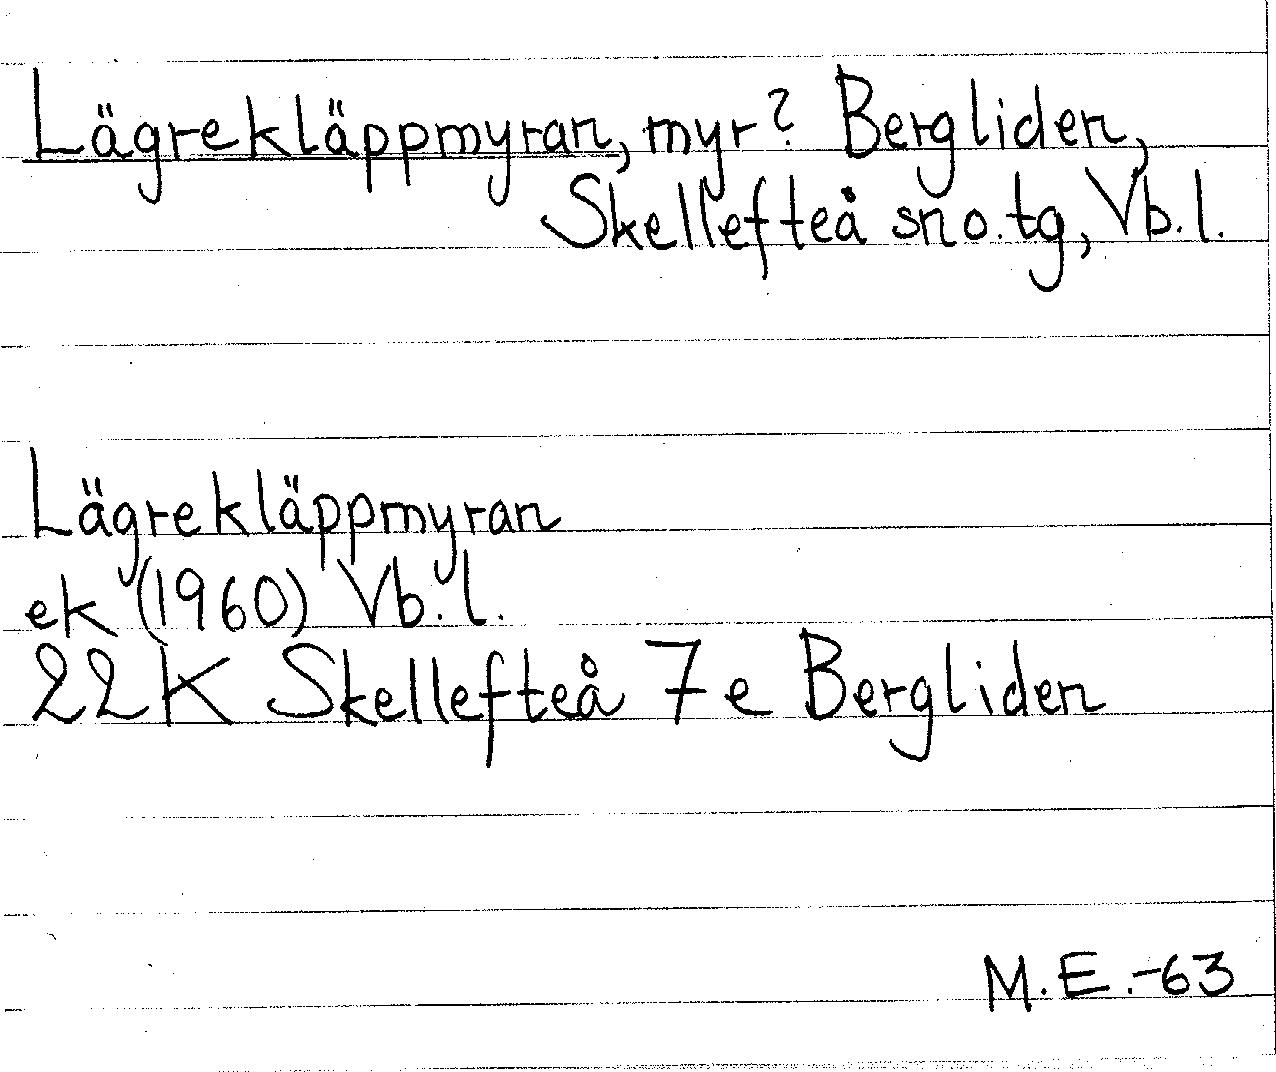 Lägrekläppmyran, myr? Bergliden,
Skellefteå sno.tg, Vb.l.
Lägrekläppmyran
ek (1960) Vb.l.
22K Skellefteå 7e Bergliden
M.E.-63